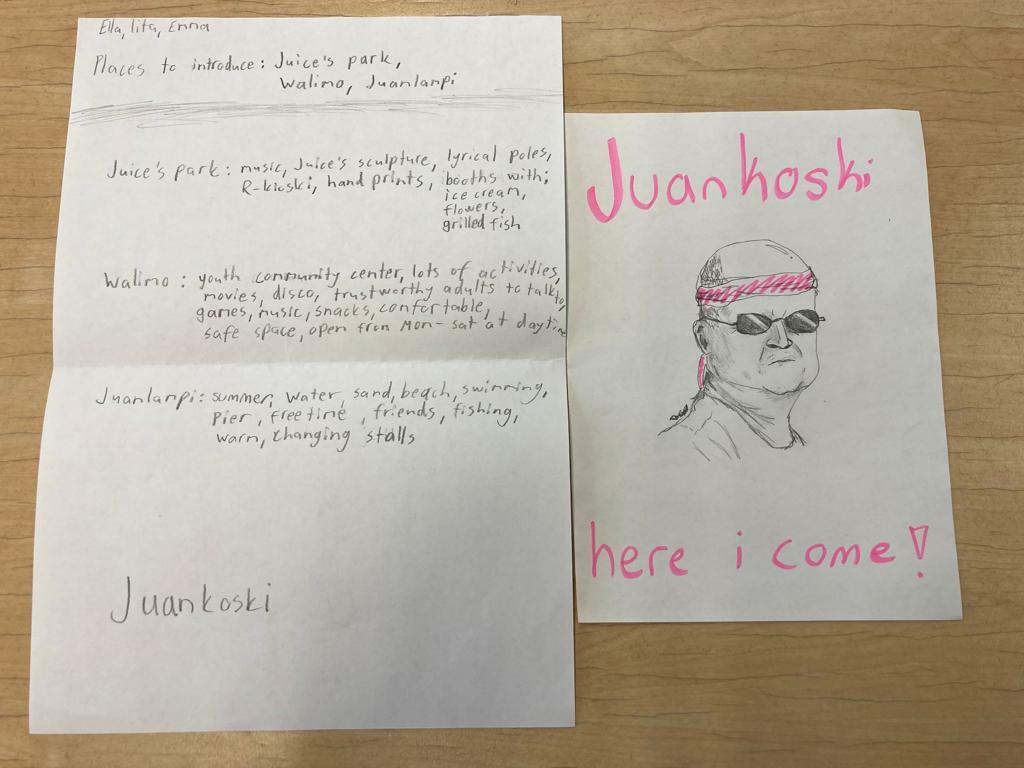 Ella, Iita, Emma
Places to introduce: Juice's park,
Walimo, Juanlampi
Juice's park: music, Juice's sculpture, lyrical poles,
R-kioski, hand prints, booths with;
ice cream,
flowers,
grilled fish
Walimo: youth community center, lots of activities,
movies, disco, trustworthy adults to talk to,
games, music, snacks, comfortable,
safe space, open from Mon- sat at daytime
Juanlampi: summer, water, sand, beach, swimming,
Pier, freetime, friends, fishing,
warm, changing stalls
Juankoski
Juankoski
here i come!